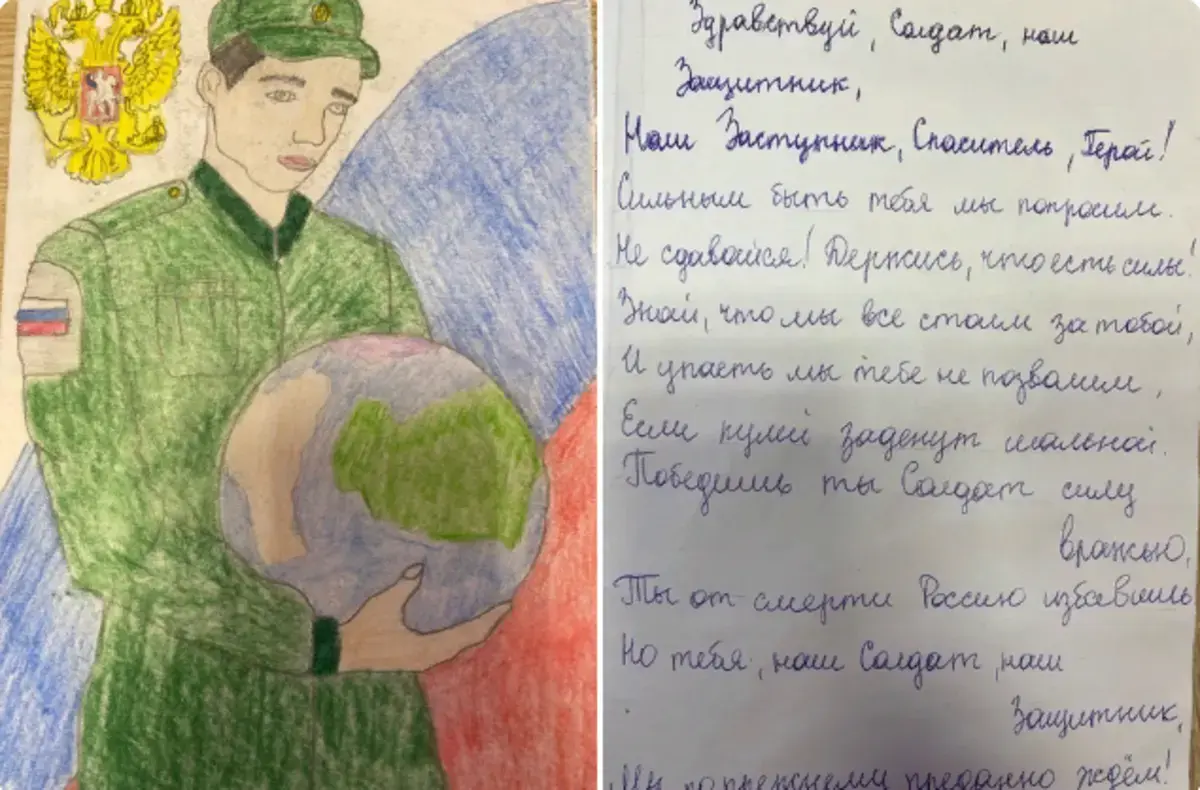 Здравствуй, Солдат, наш
Защитник,
Наш Заступник, Спаситель, Герой!
Сильным быть тебя мы попросим.
Не сдавайся! Держись, что есть силы!
Знай, что мы все стоим за тобой,
И упасть мы тебе не позволим,
Если пулей заденут шальной.
Победишь ты Солдат силу
вражью,
Ты от смерти Россию избавишь
Но тебя, наш Солдат, наш
Защитник,
Мы по прежнему преданно ждём!